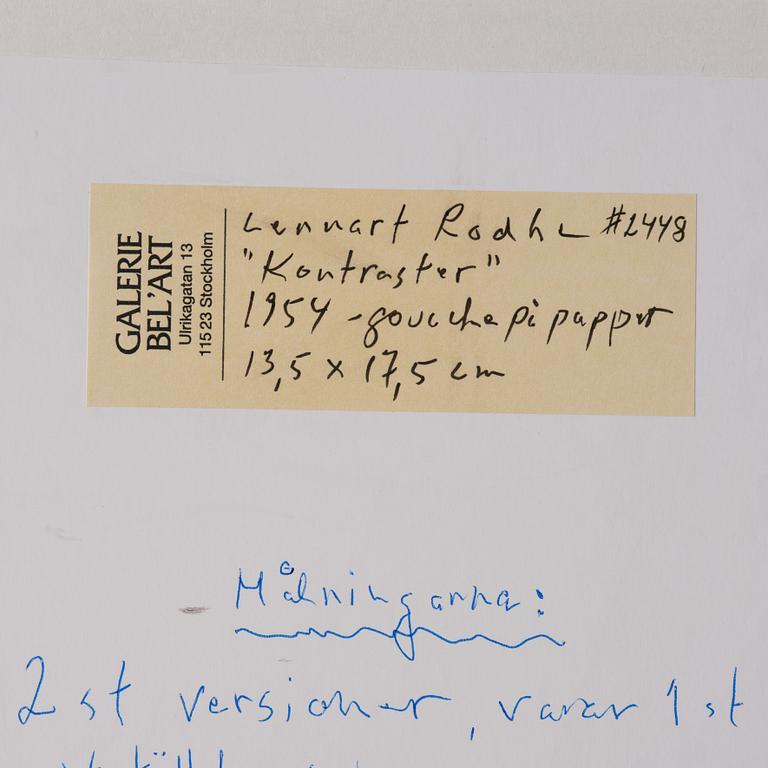 GALERIE
BEL'ART
Ulrikagatan 13
115 23 Stockholm
Lennart Rodhe #2448
"Kontraster"
1954 - gouache på papper
13,5 x 17,5 cm
Målningarna:
2 st versioner, varav 1 st